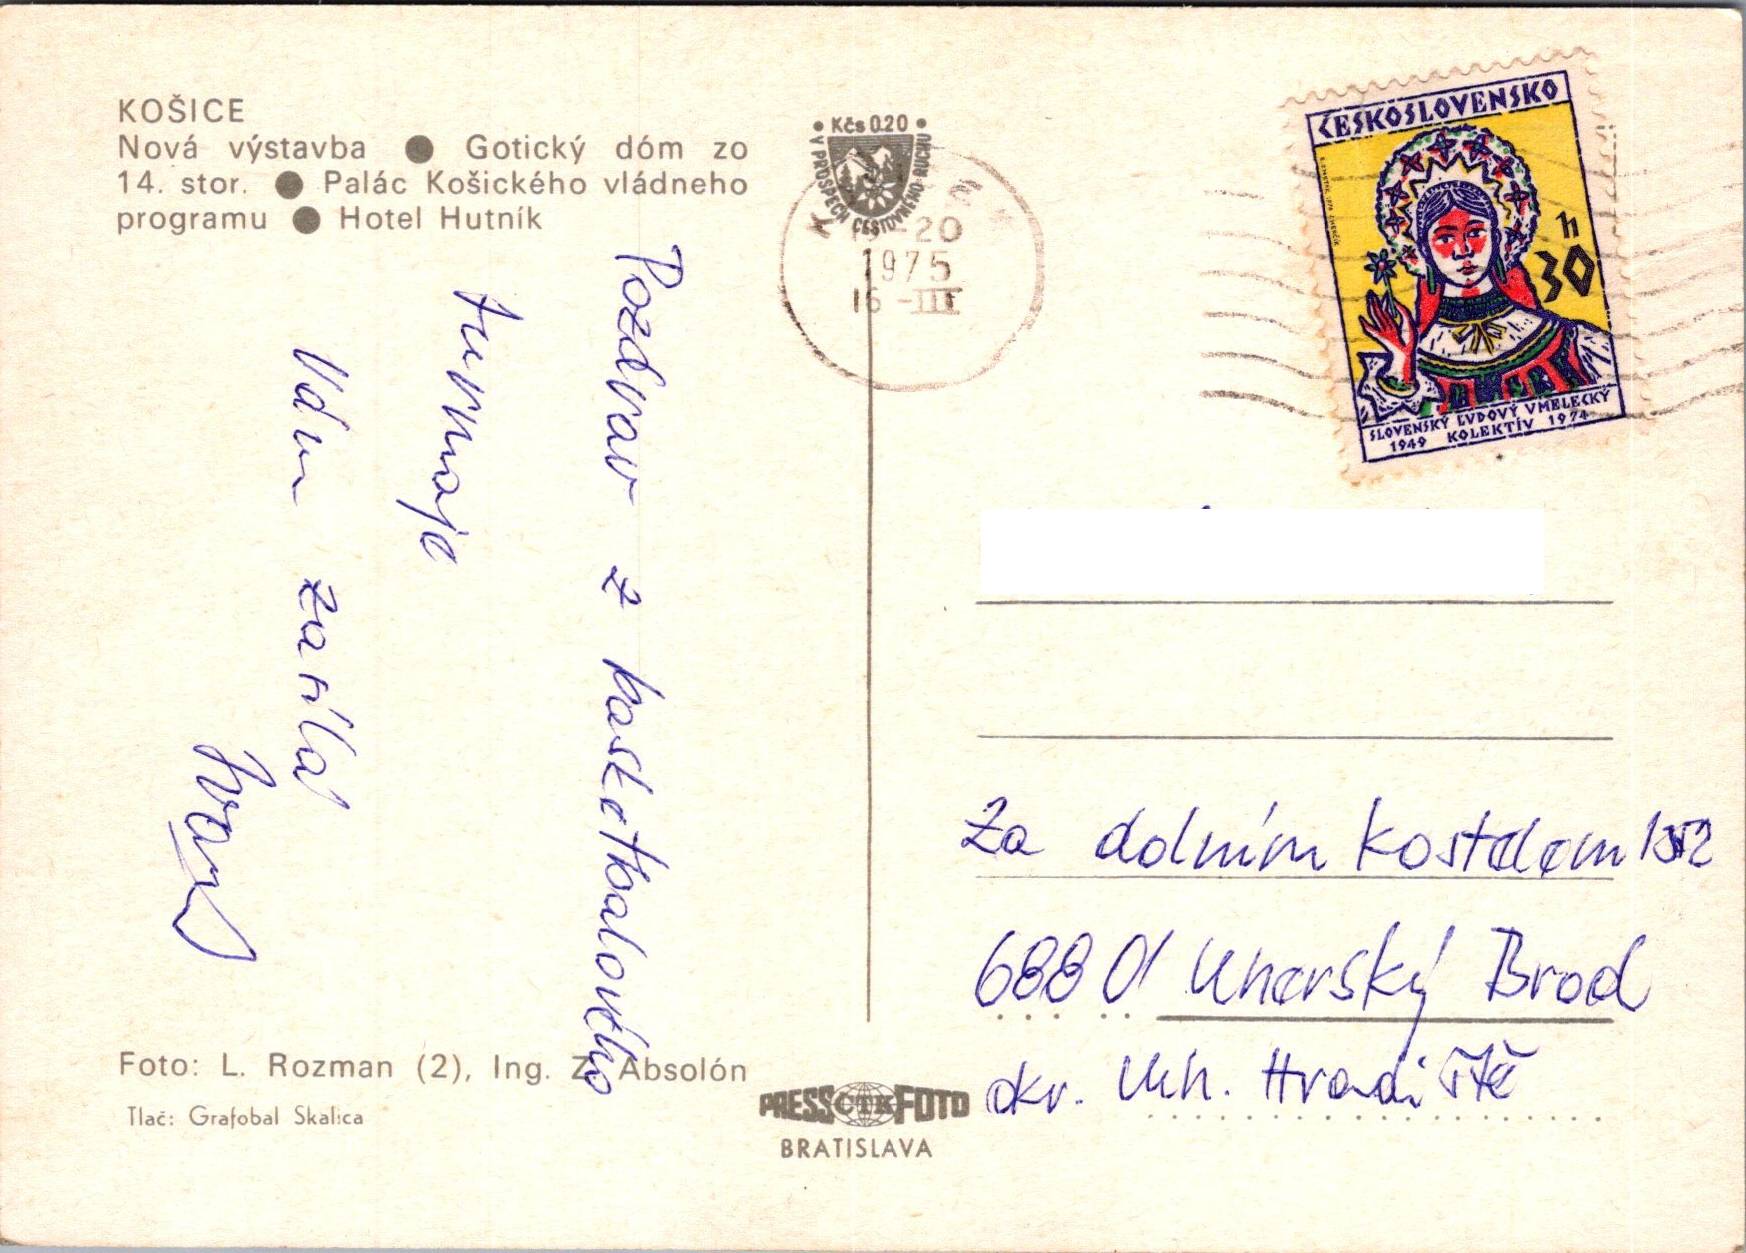 KOŠICE
Nová výstavba ● Gotický dóm zo
14. stor. ● Palác Košického vládneho
programu ● Hotel Hutník
Kčs 0.20
V PROSPECH CESTOVNÉHO RUCHU
-20
1975
16 -III
ČESKOSLOVENSKO
30 h
SLOVENSKÝ ĽUDOVÝ UMELECKÝ
1949 KOLEKTÍV 1974
Pozdrav z basketbalového
turnaje
Vám zasílá
Za dolním kostelem
688 01 Uherský Brod
okr. Uh. Hradiště
Foto: L. Rozman (2), Ing. Z. Absolón
Tlač: Grafobal Skalica
PRESS ČTK FOTO
BRATISLAVA